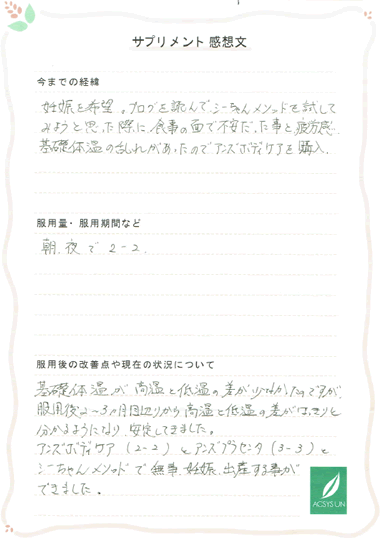 サプリメント 感想文
今までの経緯
妊娠を希望。ブログを読んで、シーちゃんメソッドを試して
みようと思った際に、食事の面で不安だった事と疲労感
基礎体温の乱れがあったのでアンズボディケアを購入.
服用量・服用期間など
朝、夜で 2-2.
服用後の改善点や現在の状況について
基礎体温が高温と低温の差が少なかったのですが
服用後2～3ヶ月目辺りから高温と低温の差がはっきりと
分かるようになり、安定してきました。
アンズボディケア (2-2) とアンズプラセンタ (3-3) と
シーちゃんメソッドで無事、妊娠、出産する事が
できました。
ACSYS UN